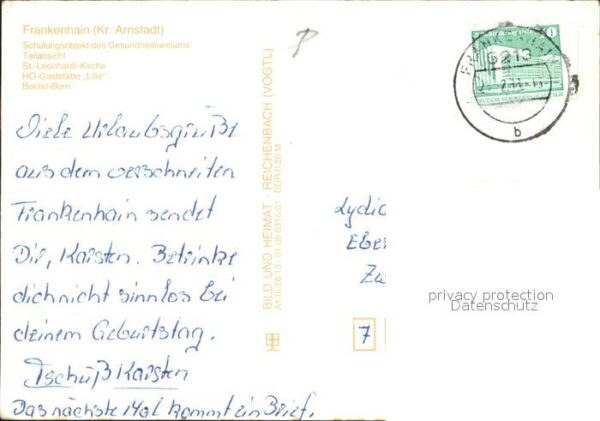 Frankenhain (Kr. Arnstadt)
Schulungsobjekt des Gesundheitswesens
Teilansicht
St.-Leonhardi-Kirche
HO-Gaststätte „Lilie“
Borzel-Born
Viele Urlaubsgrüße
aus dem verschneiten
Frankenhain sendet
Dir, Karsten. Betrinke
dich nicht sinnlos bei
deinem Geburtstag.
Tschüß Karsten
Das nächste Mal kommt ein Brief.
BILD UND HEIMAT · REICHENBACH (VOGTL)
DDR 0,20 M
FRANKENHAIN
5213
b
Lydia
Eber
7
privacy protection
Datenschutz